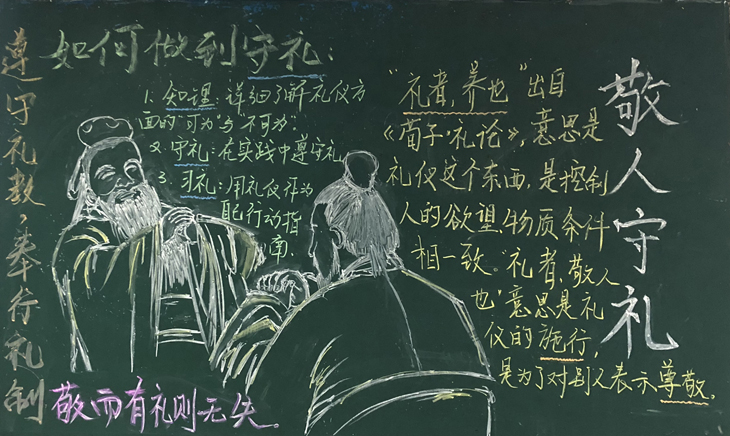 遵守礼教，奉行礼制
如何做到守礼：
1、知理：详细了解礼仪方
面的"可为"与"不可为"
2、守礼：在实践中遵守礼
3、习礼：用礼仪作为
自己行动指
南.
"礼者，养也"出自
《荀子·礼论》，意思是
礼仪这个东西，是控制
人的欲望，物质条件
相一致。"礼者，敬人
也"意思是礼
仪的施行，
是为了对别人表示尊敬。
敬人守礼
敬而有礼则无失。